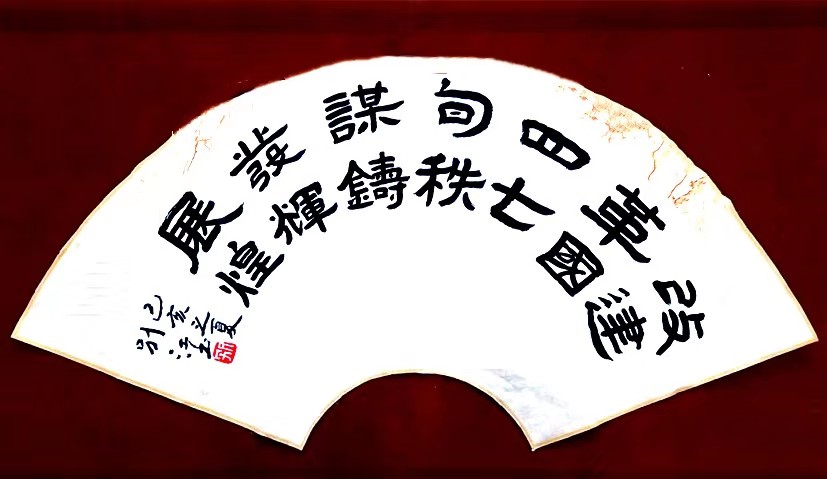 改革四旬謀發展
建國七秩鑄輝煌
己亥之夏